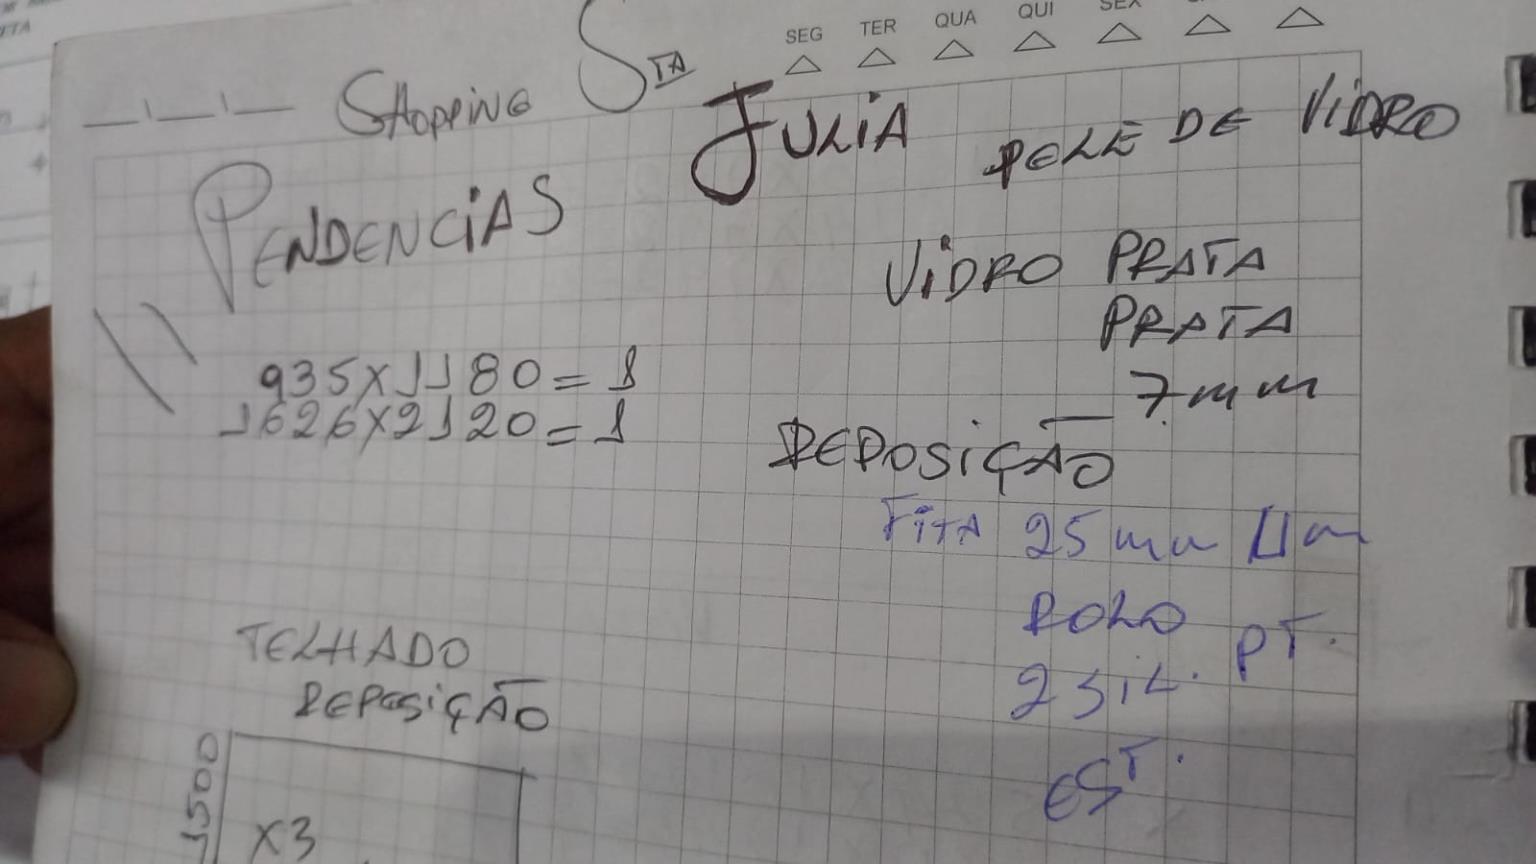 SEG TER QUA QUI SEX
Shopping Sta Julia
PELE DE VIDRO
PENDENCIAS
VIDRO PRATA
PRATA
7mm
935x1180=1
1626x2120=1
REPOSIÇÃO
FITA 25mm
ROLO
2 SIL. PT.
EST.
TELHADO
REPOSIÇÃO
1500
x3